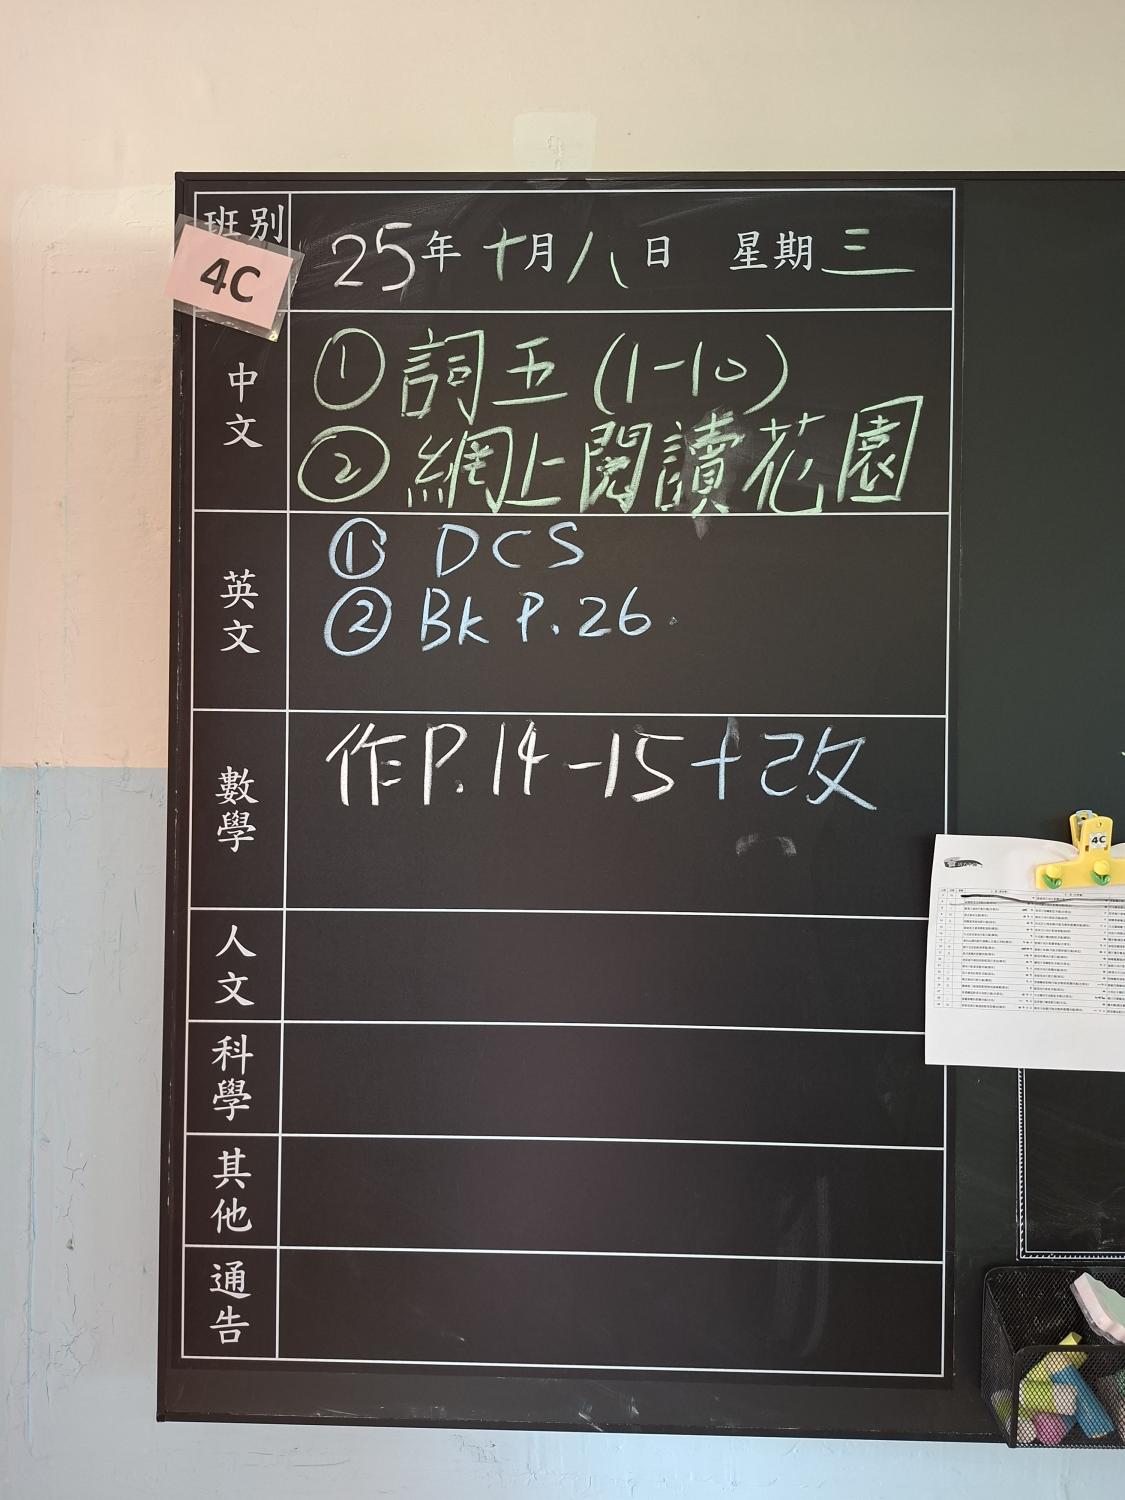 班別
4C
25年十月八日 星期三
中文
① 詞五(1-10)
② 網上閱讀花園
英文
① DCS
② Bk P.26.
數學
作P.14-15+改
人文
科學
其他
通告
4C